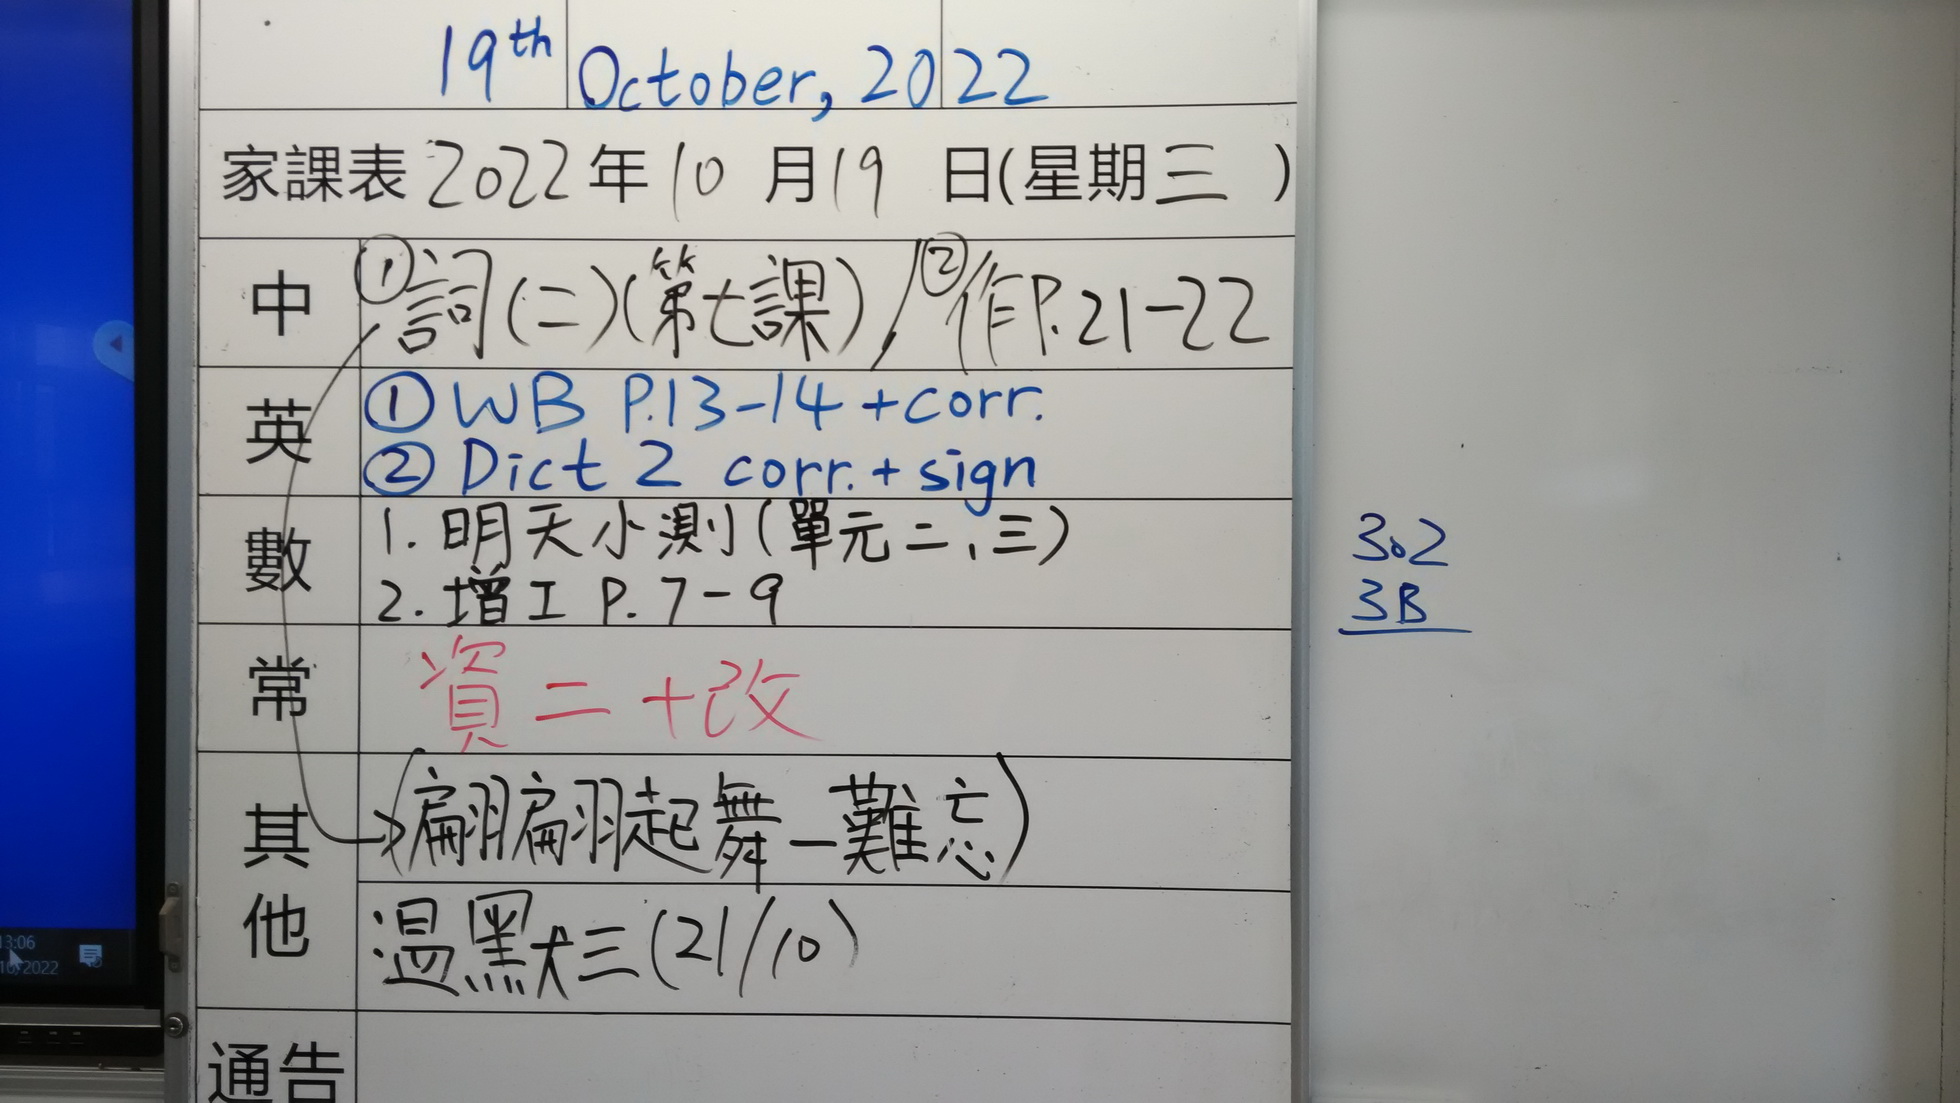 19th October, 2022
家課表 2022 年 10 月 19 日(星期三 )
中 ①詞(二)(第七課) / ②作P.21-22
英 ① WB P.13-14 +corr.
② Dict 2 corr. + sign
數 1. 明天小測(單元二、三)
2. 增工 P. 7-9
常 資二 +改
其他 (翩翩起舞—難忘)
温默書三(21/10)
通告
3.2
3B
13:06
2022